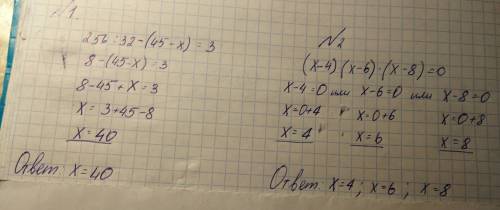 №1
256:32-(45-x)=3
8-(45-x)=3
8-45+x=3
x=3+45-8
x=40
Ответ: x=40
№2
(x-4)·(x-6)·(x-8)=0
x-4=0 или x-6=0 или x-8=0
x=0+4 x=0+6 x=0+8
x=4 x=6 x=8
Ответ: x=4; x=6; x=8